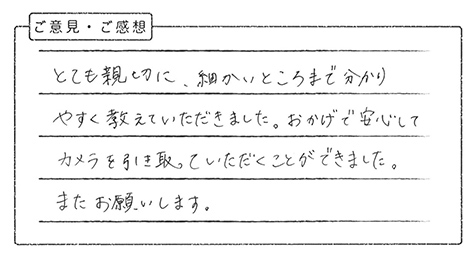 ご意見・ご感想
とても親切に、細かいところまで分かり
やすく教えていただきました。おかげで安心して
カメラを引き取っていただくことができました。
またお願いします。